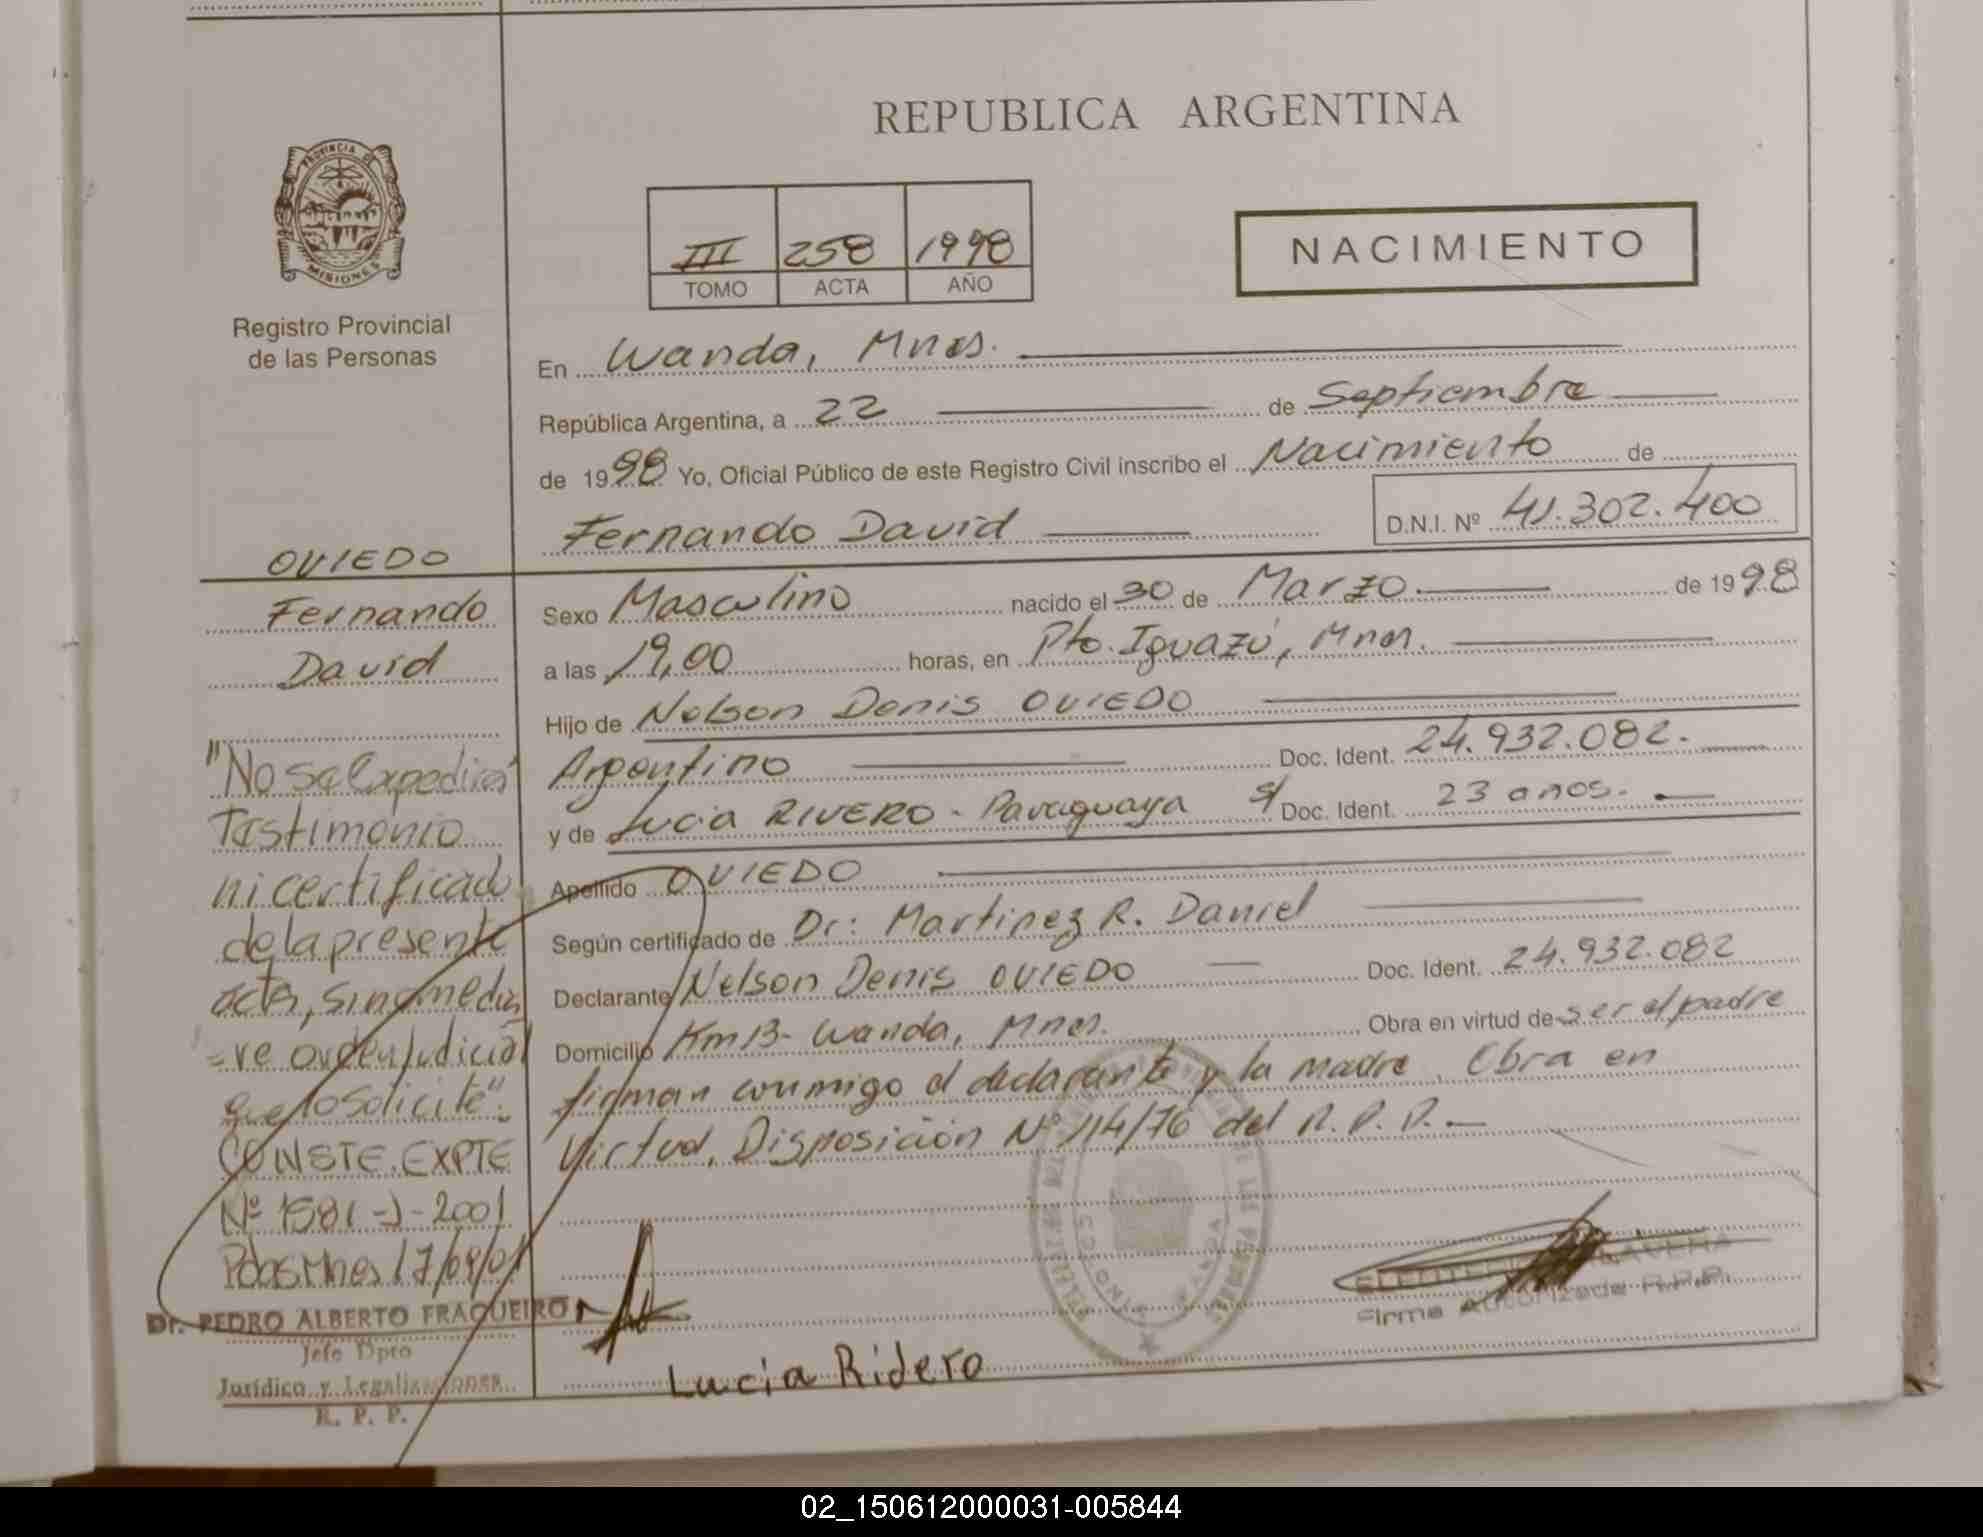 REPUBLICA ARGENTINA
PROVINCIA DE
MISIONES
Registro Provincial
de las Personas
III 258 1998
TOMO ACTA AÑO
NACIMIENTO
En Wanda, Mnes.
República Argentina, a 22 de Septiembre
de 1998 Yo, Oficial Público de este Registro Civil inscribo el Nacimiento de
Fernando David D.N.I. Nº 41.302.400
Sexo Masculino nacido el 30 de Marzo de 1998
a las 19,00 horas, en Pto. Iguazú, Mnes.
Hijo de Nelson Denis OVIEDO
Argentino Doc. Ident. 24.932.082.-
y de Lucia RIVERO - Paraguaya s/ Doc. Ident. 23 anos.-
Apellido OVIEDO
Según certificado de Dr: Martinez R. Daniel
Declarante Nelson Denis OVIEDO Doc. Ident. 24.932.082
Domicilio Km 13- Wanda, Mnes. Obra en virtud de ser el padre
firman conmigo el declarante y la madre. Obra en
Virtud, Disposición Nº 114/76 del R.P.P.-
OVIEDO
Fernando
David
"No se Expedira
Testimonio
ni certificado
de la presente
acta, sin o medie
=re orden judicial
que lo solicite".
CONSTE. EXPTE
Nº 1581-J-2001
Pdas Mnes 17/09/01
Dr. PEDRO ALBERTO FRAQUEIRO
Jefe Dpto
Jurídico y Legalizaciones
R. P. P.
Lucia Ridero
WANDA
Firma Autorizada R.P.P.
02_150612000031-005844